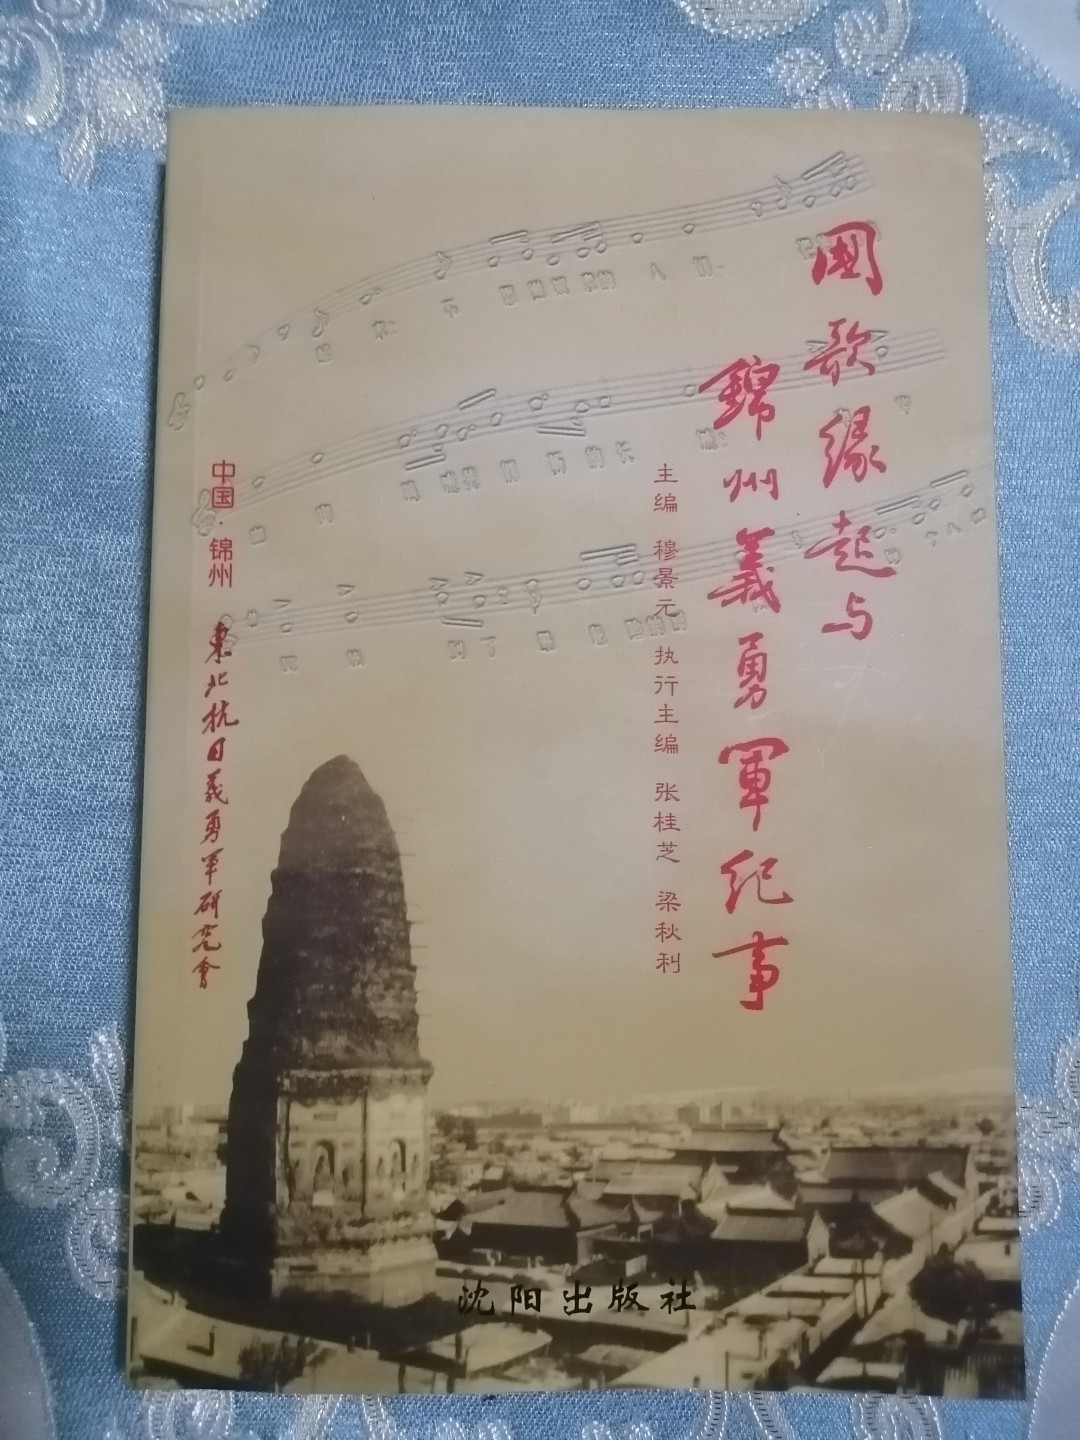 國歌缘起与
錦州義勇軍纪事
主编 穆景元 执行主编 张桂芝 梁秋利
中国·锦州 東北抗日義勇軍研究會
沈阳出版社